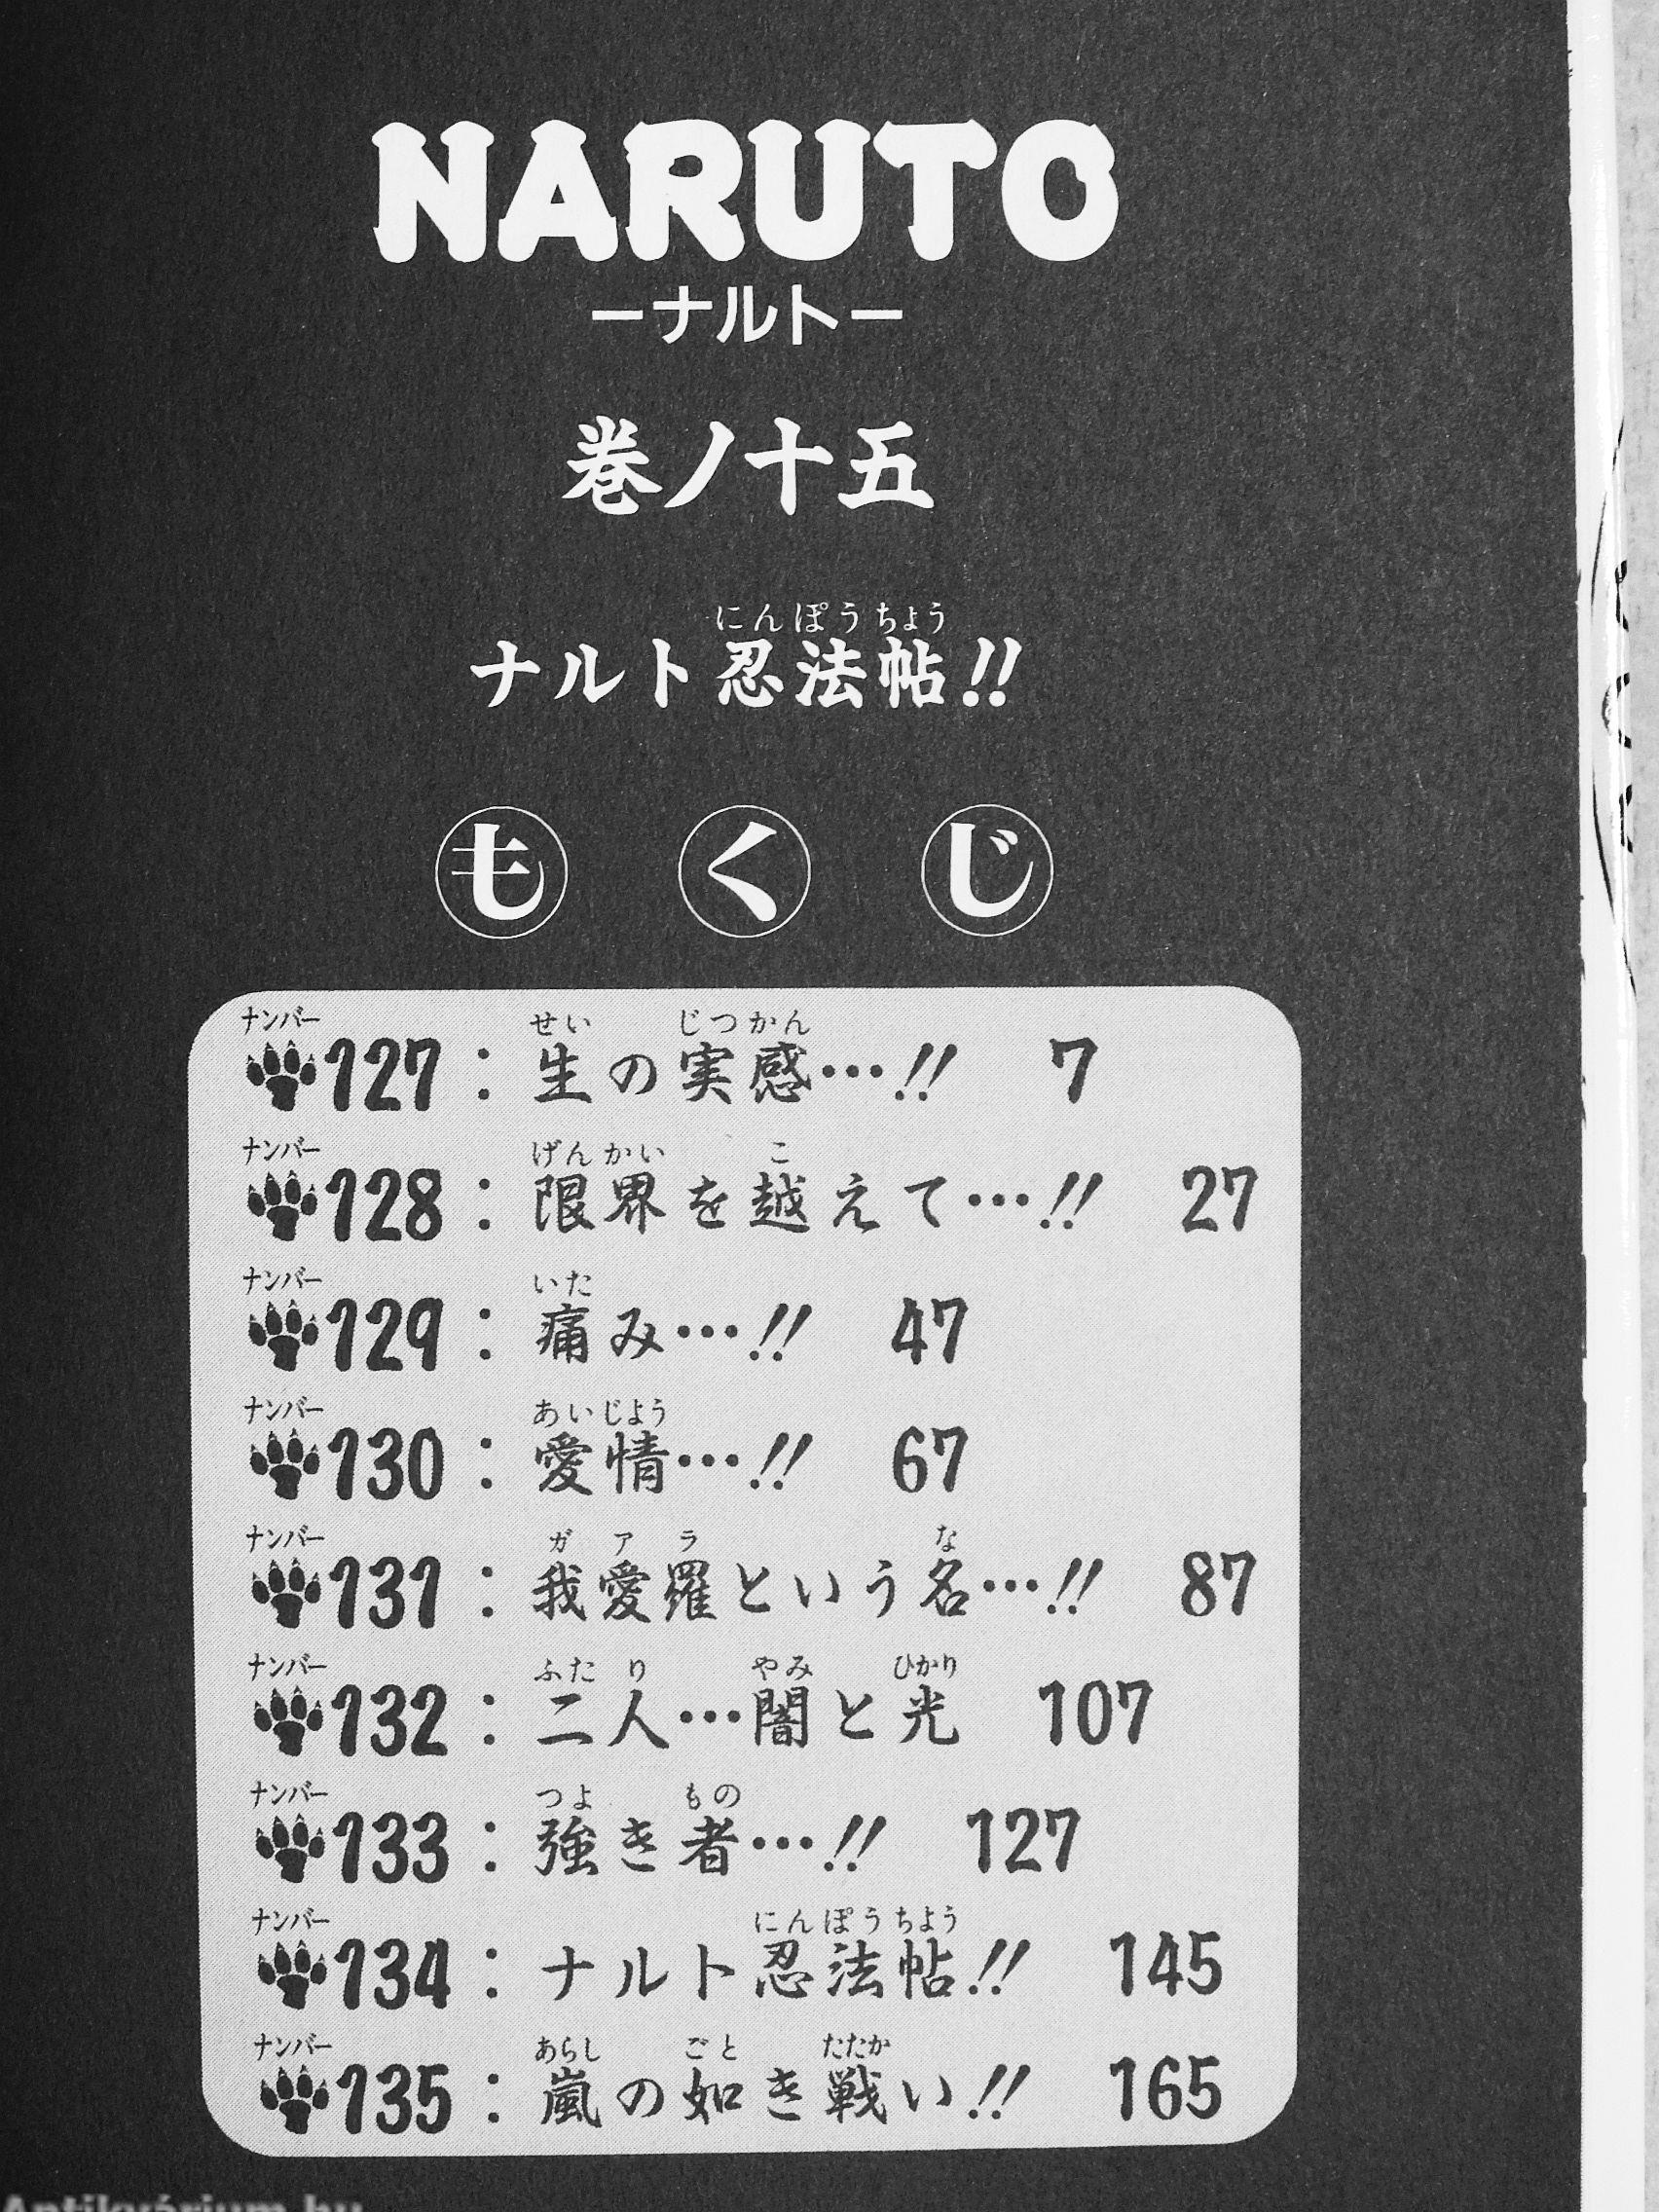 NARUTO
ーナルトー
巻ノ十五
にんぽうちょう
ナルト忍法帖!!
もくじ
ナンバー せい じつかん
127：生の実感…!! 7
ナンバー げんかい こ
128：限界を越えて…!! 27
ナンバー いた
129：痛み…!! 47
ナンバー あいじょう
130：愛情…!! 67
ナンバー ガアラ な
131：我愛羅という名…!! 87
ナンバー ふたり やみ ひかり
132：二人…闇と光 107
ナンバー つよ もの
133：強き者…!! 127
ナンバー にんぽうちょう
134：ナルト忍法帖!! 145
ナンバー あらし ごと たたか
135：嵐の如き戦い!! 165
Antikvárium.hu